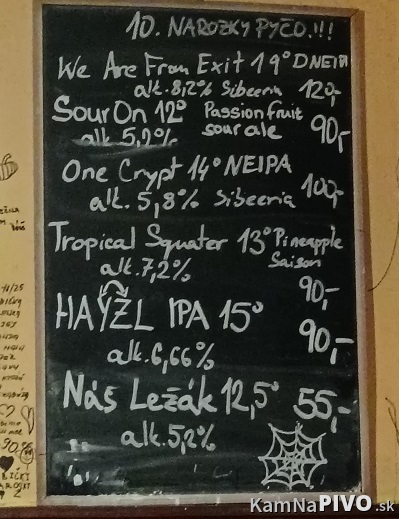 10. NAROZKY PYČO.!!!
We Are From Exit 19° DNEIPA
alk. 8,2% Sibeeria 120,-
Sour On 12° Passion fruit
alk. 5,2% sour ale 90,-
One Crypt 14° NEIPA
alk. 5,8% Sibeeria 100,-
Tropical Squater 13° Pineapple
alk. 7,2% Saison
90,-
HAYZL IPA 15° 90,-
alk. 6,66%
Náš Ležák 12,5° 55,-
alk. 5,2%
KamNaPIVO.sk